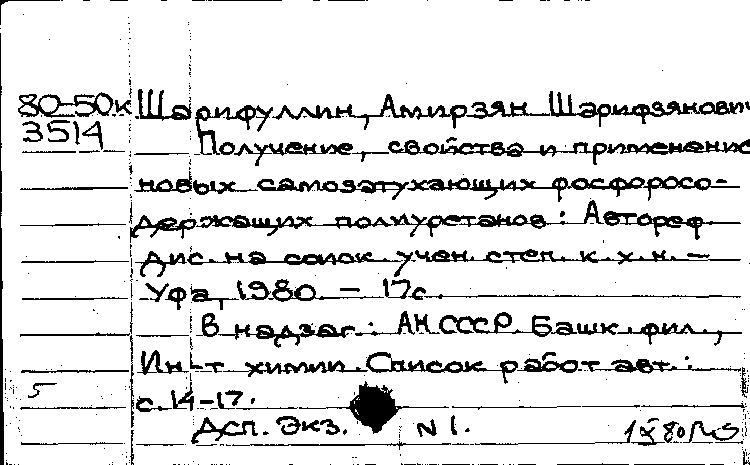 80-50к Шарифуллин, Амирзян Шарифзянович
3514 Получение, свойства и применение
новых самозатухающих фосфоросо-
держащих полиуретанов: Автореф.
дис. на соиск. учен. степ. к. х. н. –
Уфа, 1980. – 17с.
В надзаг.: АН СССР. Башк. фил.,
Ин-т химии. Список работ авт.:
5 с. 14-17.
Дсп. Экз. N 1.